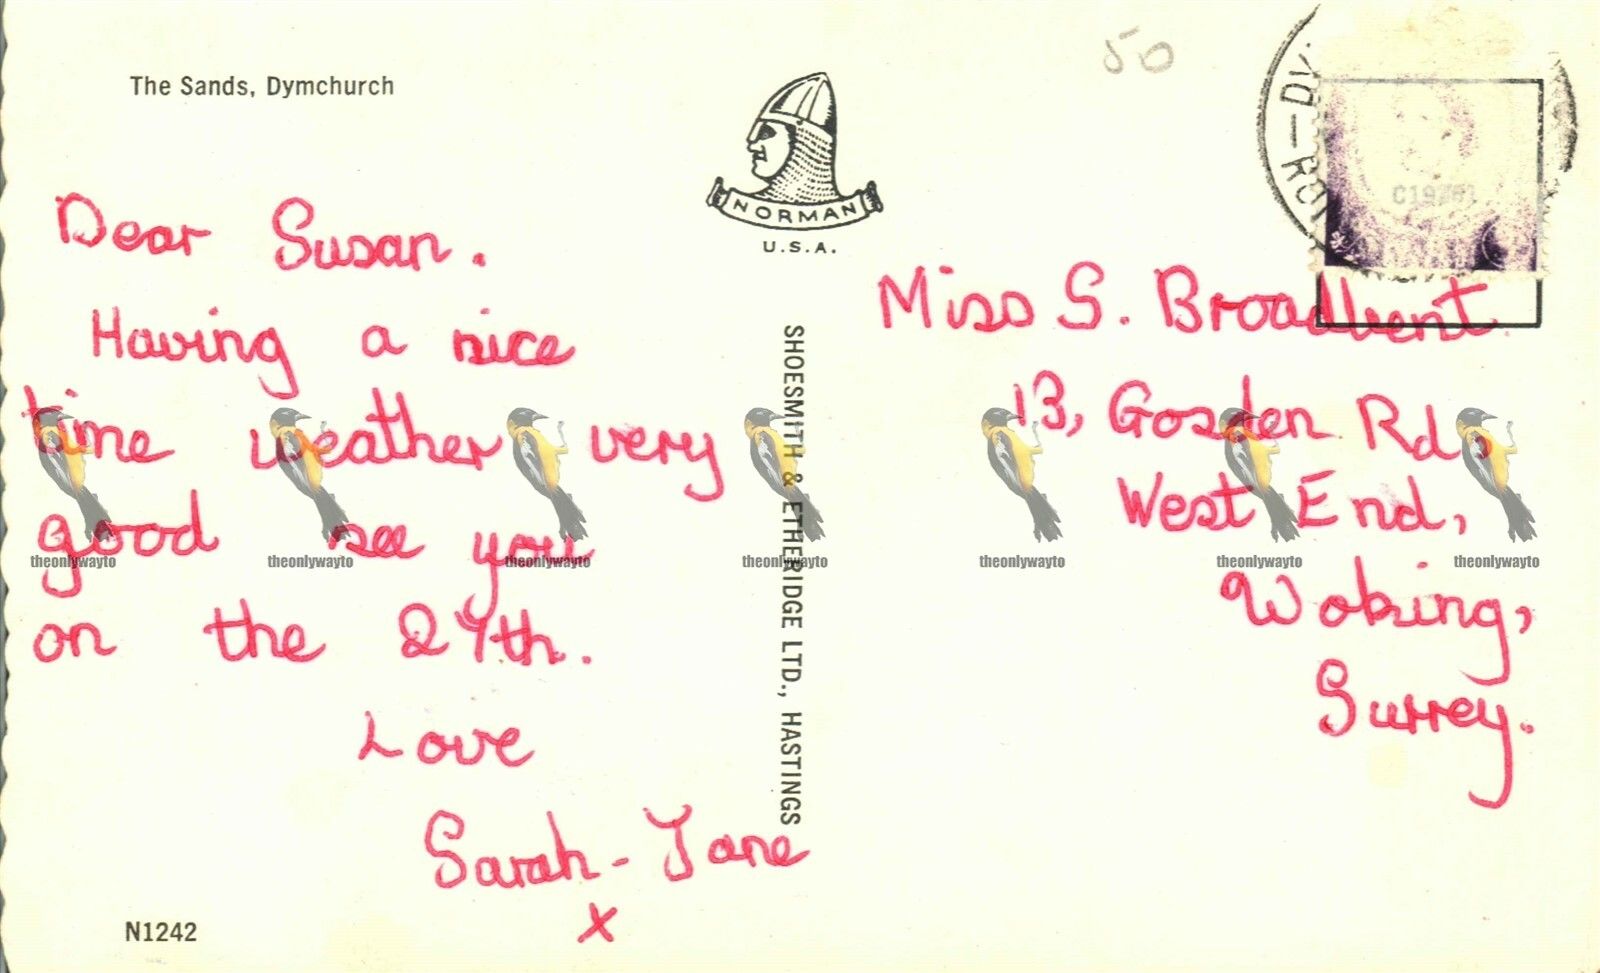 The Sands, Dymchurch
Dear Susan.
Having a nice
time weather very
good see you
on the 24th.
Love
Sarah-Jane
x
N1242
NORMAN
U.S.A.
SHOESMITH & ETHERIDGE LTD., HASTINGS
50
Miss S. Broadbent.
13, Gosden Rd,
West End,
Woking,
Surrey.
theonlywayto
theonlywayto
theonlywayto
theonlywayto
theonlywayto
theonlywayto
theonlywayto